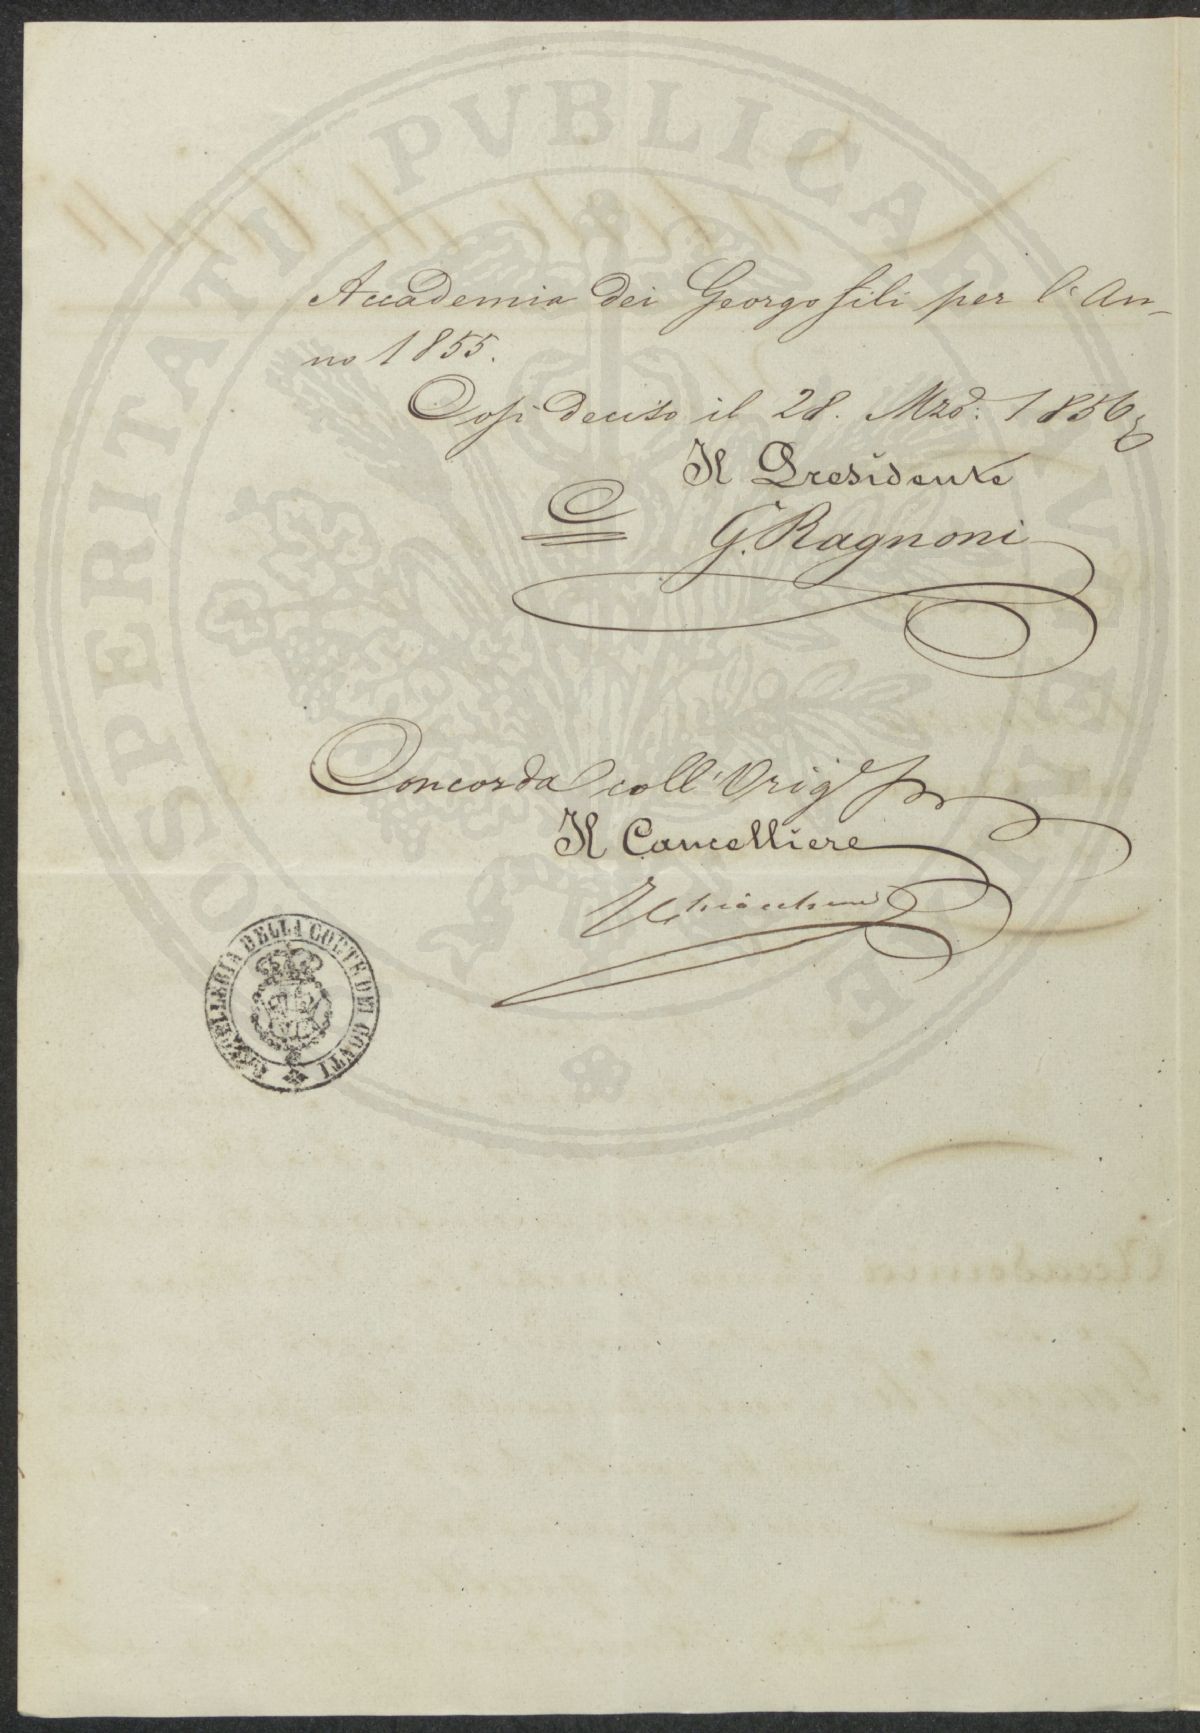 Accademia dei Georgofili per l'An-
no 1855.
Così deciso il 28. Mzo: 1856
Il Presidente
G. Ragnoni
Concorda coll'Orig
Il Cancelliere
CANCELLERIA DELLA CORTE DEI CONTI
PROSPERITATI PVBLICAE AVGENDAE